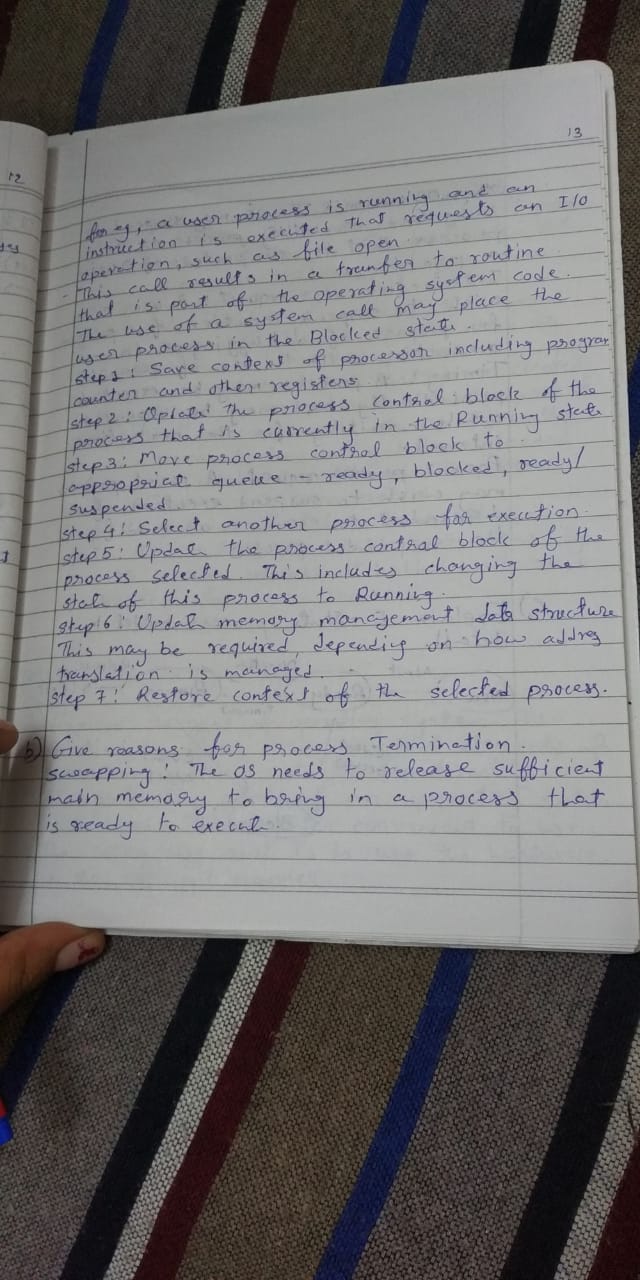 13
12
for eg, a user process is running and an
instruction is executed that requests an I/O
operation, such as file open.
- This call results in a tranfer to routine
that is part of the operating system code.
The use of a system call may place the
user process in the Blocked state.
step 1: Save context of processor including program
counter and other registers
step 2: Update the process control block of the
process that is currently in the Running state
step 3: Move process control block to
appropriat queue - ready, blocked, ready/
suspended.
step 4: Select another process for execution.
step 5: Update the process control block of the
process selected. This includes changing the
state of this process to Running.
step 6: Update memory management data structure
This may be required, depending on how addres
translation is managed.
step 7: Restore context of the selected process.
b) Give reasons for process Termination.
swapping: The OS needs to release sufficient
main memory to bring in a process that
is ready to execute.